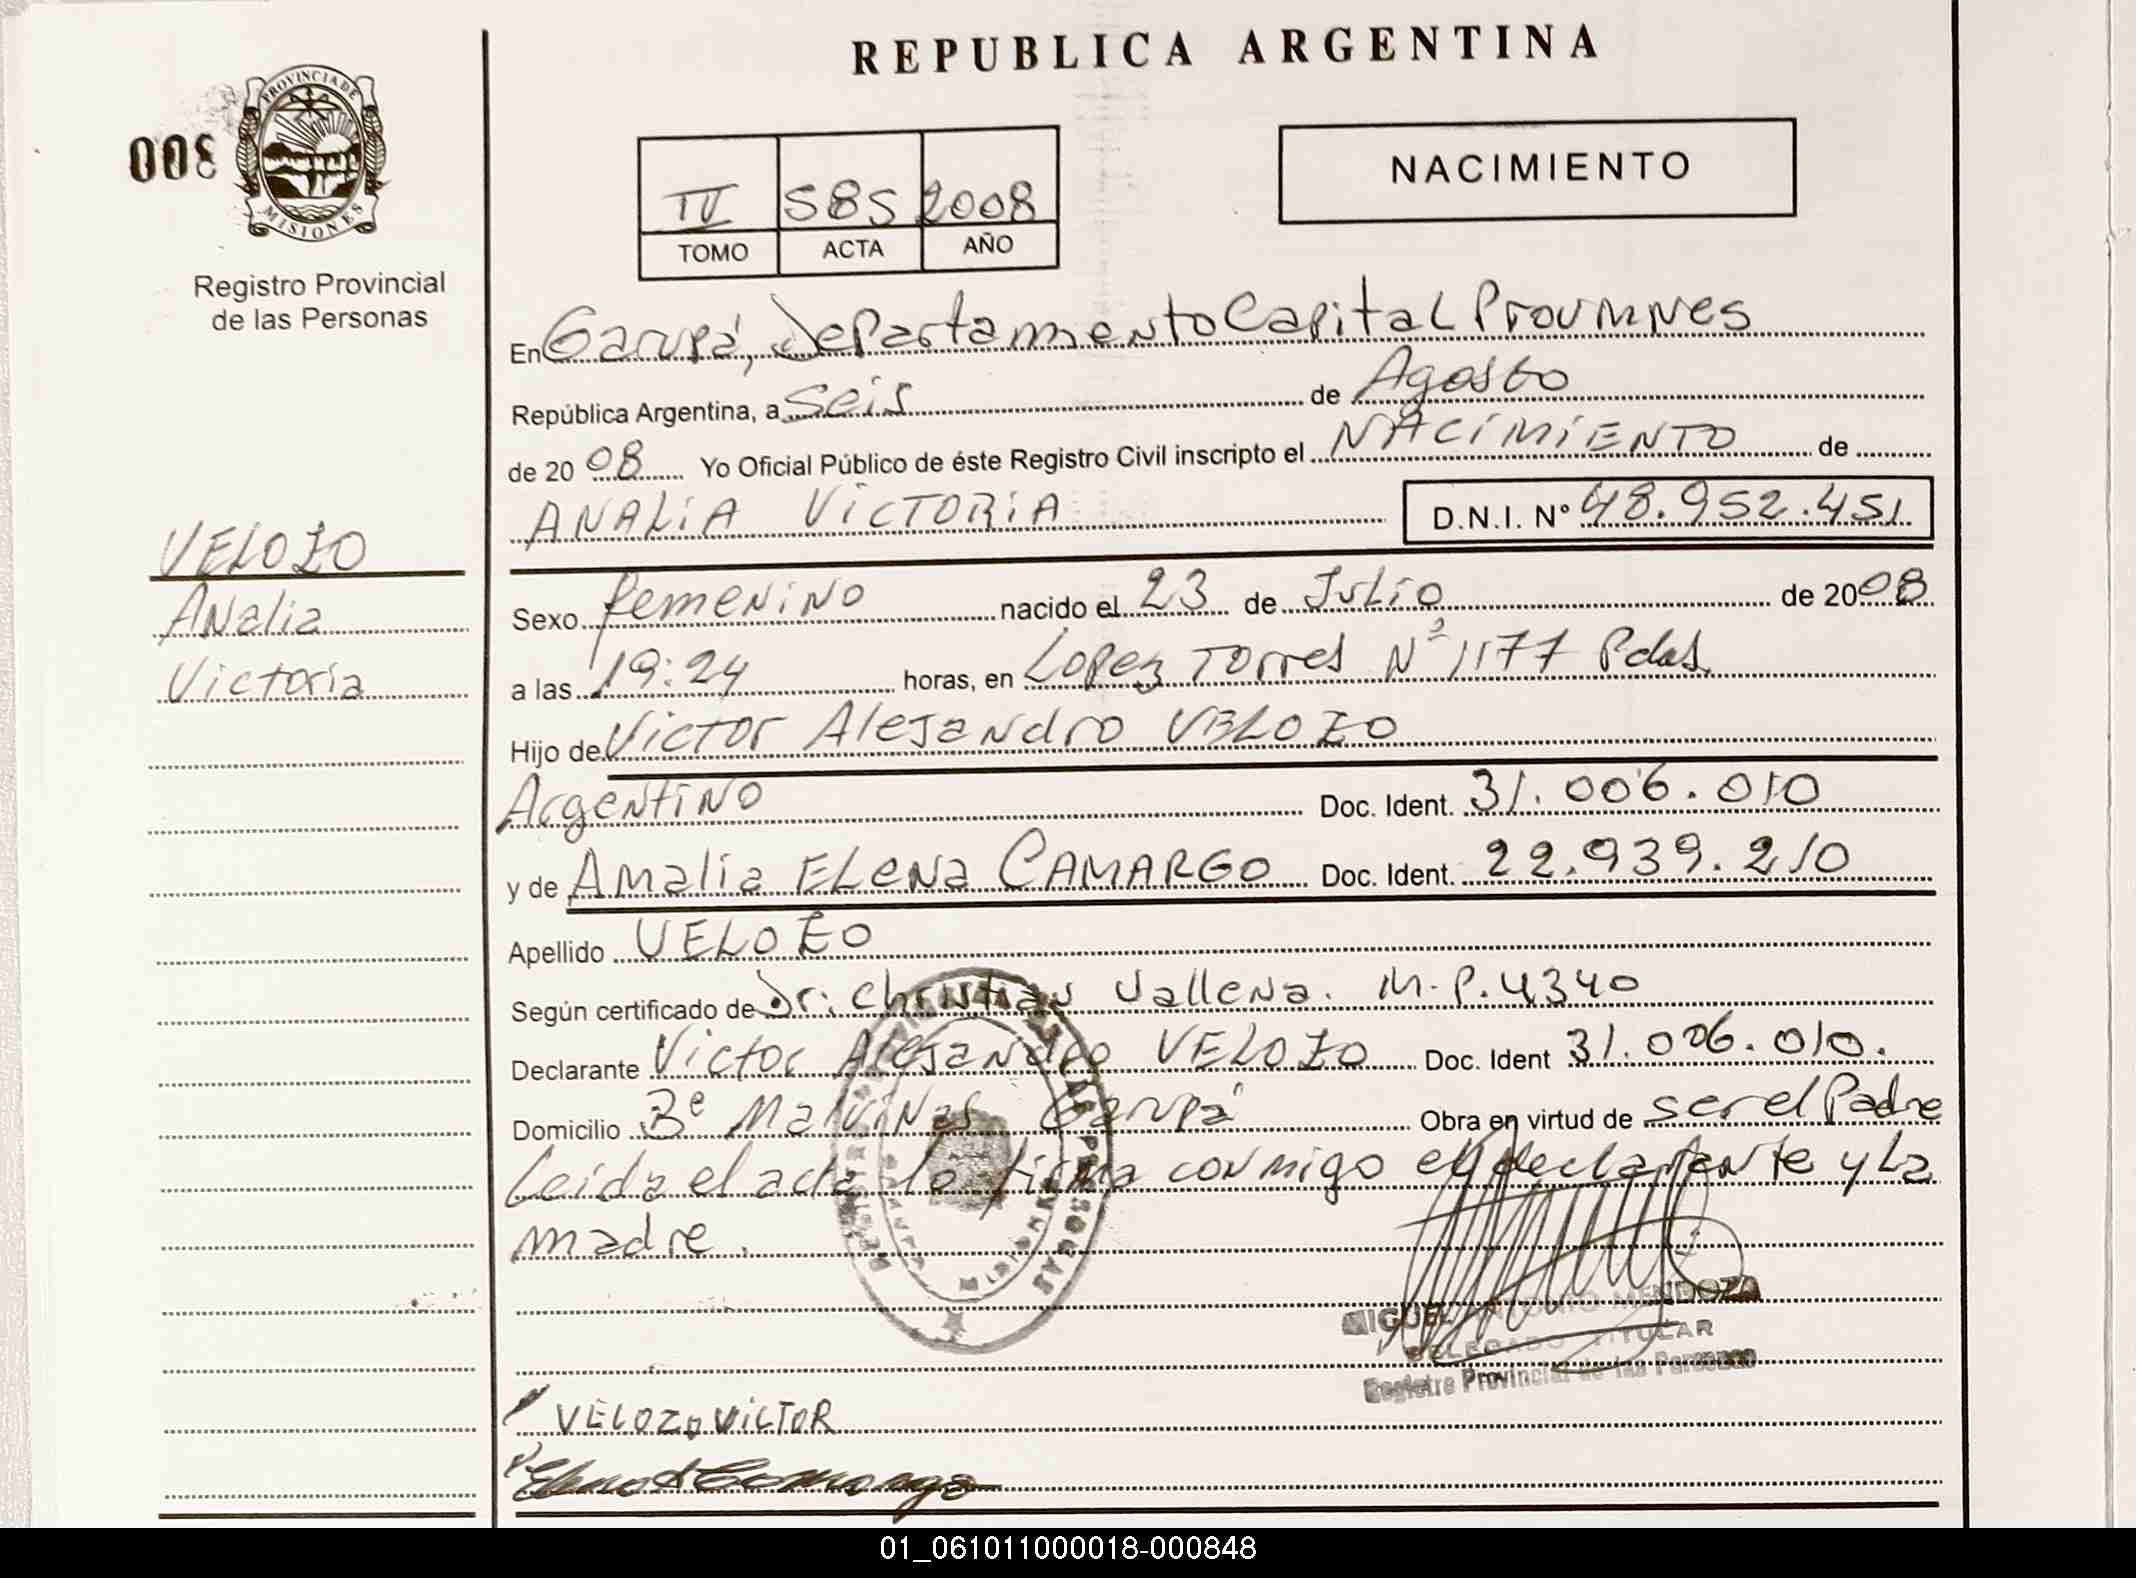 REPUBLICA ARGENTINA
PROVINCIA DE
MISIONES
008
Registro Provincial
de las Personas
IV 585 2008
TOMO ACTA AÑO
NACIMIENTO
En Garupá, departamento Capital
República Argentina, a seis de Agosto
de 2008 Yo Oficial Público de éste Registro Civil inscripto el NACIMIENTO de
ANALIA VICTORIA D.N.I. Nº 48.952.451
VELOZO
Analia
Victoria
Sexo femenino nacido el 23 de Julio de 2008
a las 19:24 horas, en Lopez Torres Nº 1177 Pdas.
Hijo de Victor Alejandro VELOZO
Argentino Doc. Ident. 31.006.010
y de Amalia ELENA CAMARGO Doc. Ident. 22.939.210
Apellido VELOZO
Según certificado de Dr: Christian Vallena. M.P. 4340
Declarante Victor Alejandro VELOZO Doc. Ident 31.006.010.
Domicilio Bº Malvinas Garupá Obra en virtud de ser el Padre
Leída el acta la firma conmigo el declarante y La
madre.
MIGUEL ANTONIO MENDOZA
DELEGADO TITULAR
Registro Provincial de las Personas
VELOZO VICTOR
01_061011000018-000848